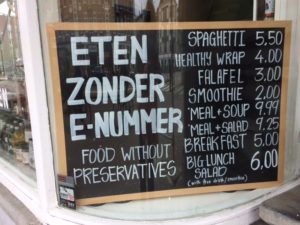 ETEN
ZONDER
E-NUMMER
FOOD WITHOUT
PRESERVATIVES
SPAGHETTI 5.50
HEALTHY WRAP 4.00
FALAFEL 3.00
SMOOTHIE 2.00
MEAL + SOUP 9.99
MEAL + SALAD 9.25
BREAKFAST 5.00
BIG LUNCH 6,00
SALAD
(with free drink/smoothie)